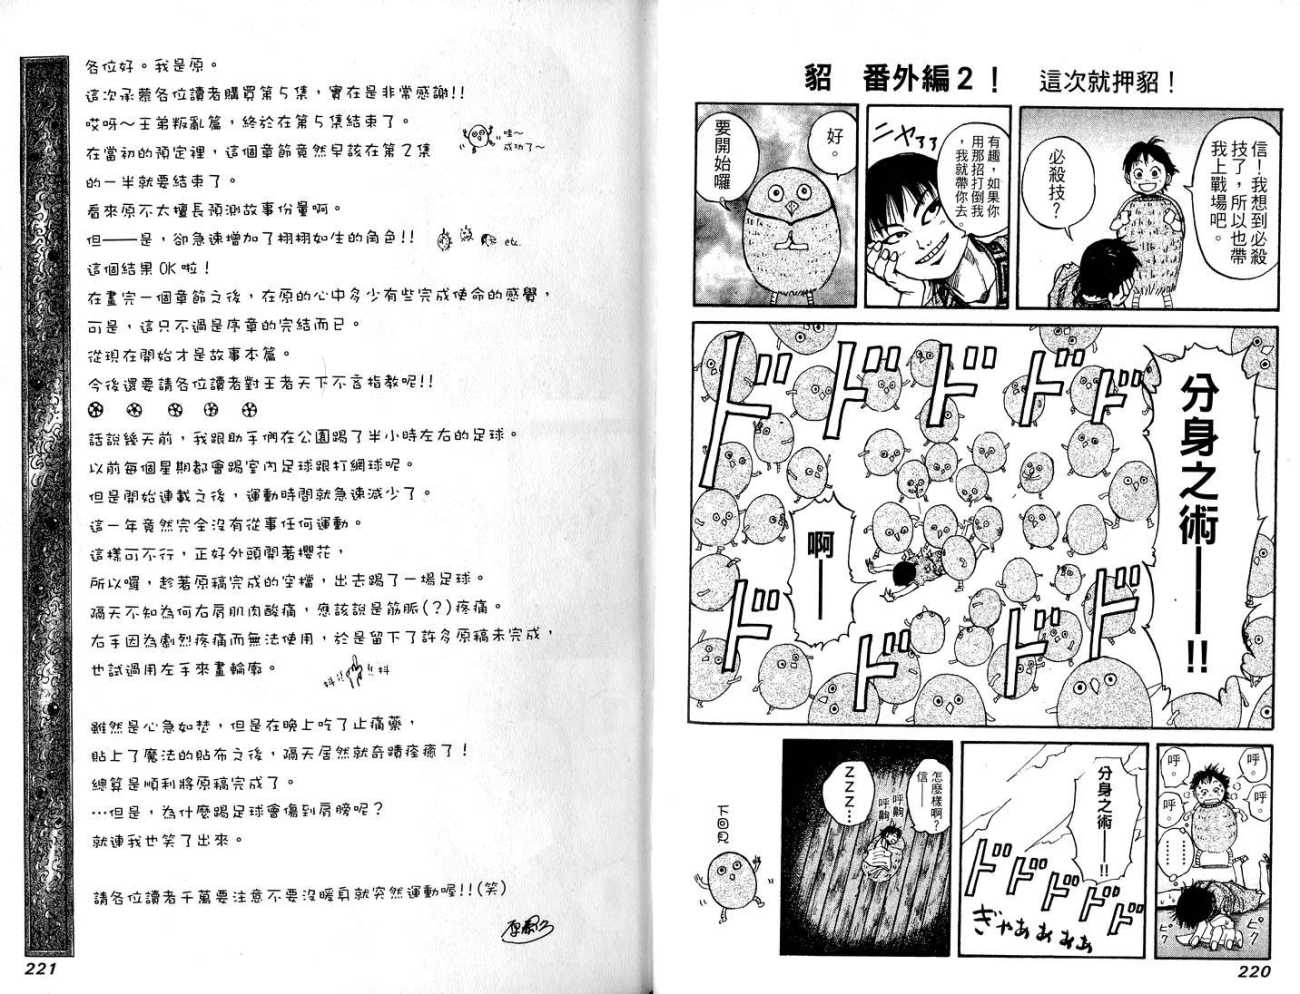 貂　番外編２！　這次就押貂！
信！我想到必殺
技了，所以也帶
我上戰場吧。
必殺技？
有趣，如果你
用那招打倒我
，我就帶你去。
ニヤ
好。
要開始囉
分身之術——!!
啊——
ド ド ド ド ド
ド ド ド ド
呼。
呼。
呼。
呼。
……
ピク
ピク
分身之術——!!
ドドドドド
ぎゃあぁぁぁぁ
怎麼樣啊？
信——
呼齁
呼齁
ZZZ…
下回見
220
各位好。我是原。
這次承蒙各位讀者購買第5集，實在是非常感謝!!
哎呀～王弟叛亂篇，終於在第5集結束了。
在當初的預定裡，這個章節竟然早該在第2集
的一半就要結束了。
哇～
成功了～
看來原不太擅長預測故事份量啊。
但——是，卻急速增加了栩栩如生的角色!!
etc.
這個結果OK啦！
在畫完一個章節之後，在原的心中多少有些完成使命的感覺，
可是，這只不過是序章的完結而已。
從現在開始才是故事本篇。
今後還要請各位讀者對王者天下不言指教呢!!
話說幾天前，我跟助手們在公園踢了半小時左右的足球。
以前每個星期都會踢室內足球跟打網球呢。
但是開始連載之後，運動時間就急速減少了。
這一年竟然完全沒有從事任何運動。
這樣可不行，正好外頭開著櫻花，
所以囉，趁著原稿完成的空檔，出去踢了一場足球。
隔天不知為何右肩肌肉酸痛，應該說是筋脈(？)疼痛。
右手因為劇烈疼痛而無法使用，於是留下了許多原稿未完成，
也試過用左手來畫輪廓。
抖!!
!!抖
雖然是心急如焚，但是在晚上吃了止痛藥，
貼上了魔法的貼布之後，隔天居然就奇蹟痊癒了！
總算是順利將原稿完成了。
…但是，為什麼踢足球會傷到肩膀呢？
就連我也笑了出來。
請各位讀者千萬要注意不要沒暖身就突然運動喔!!(笑)
221